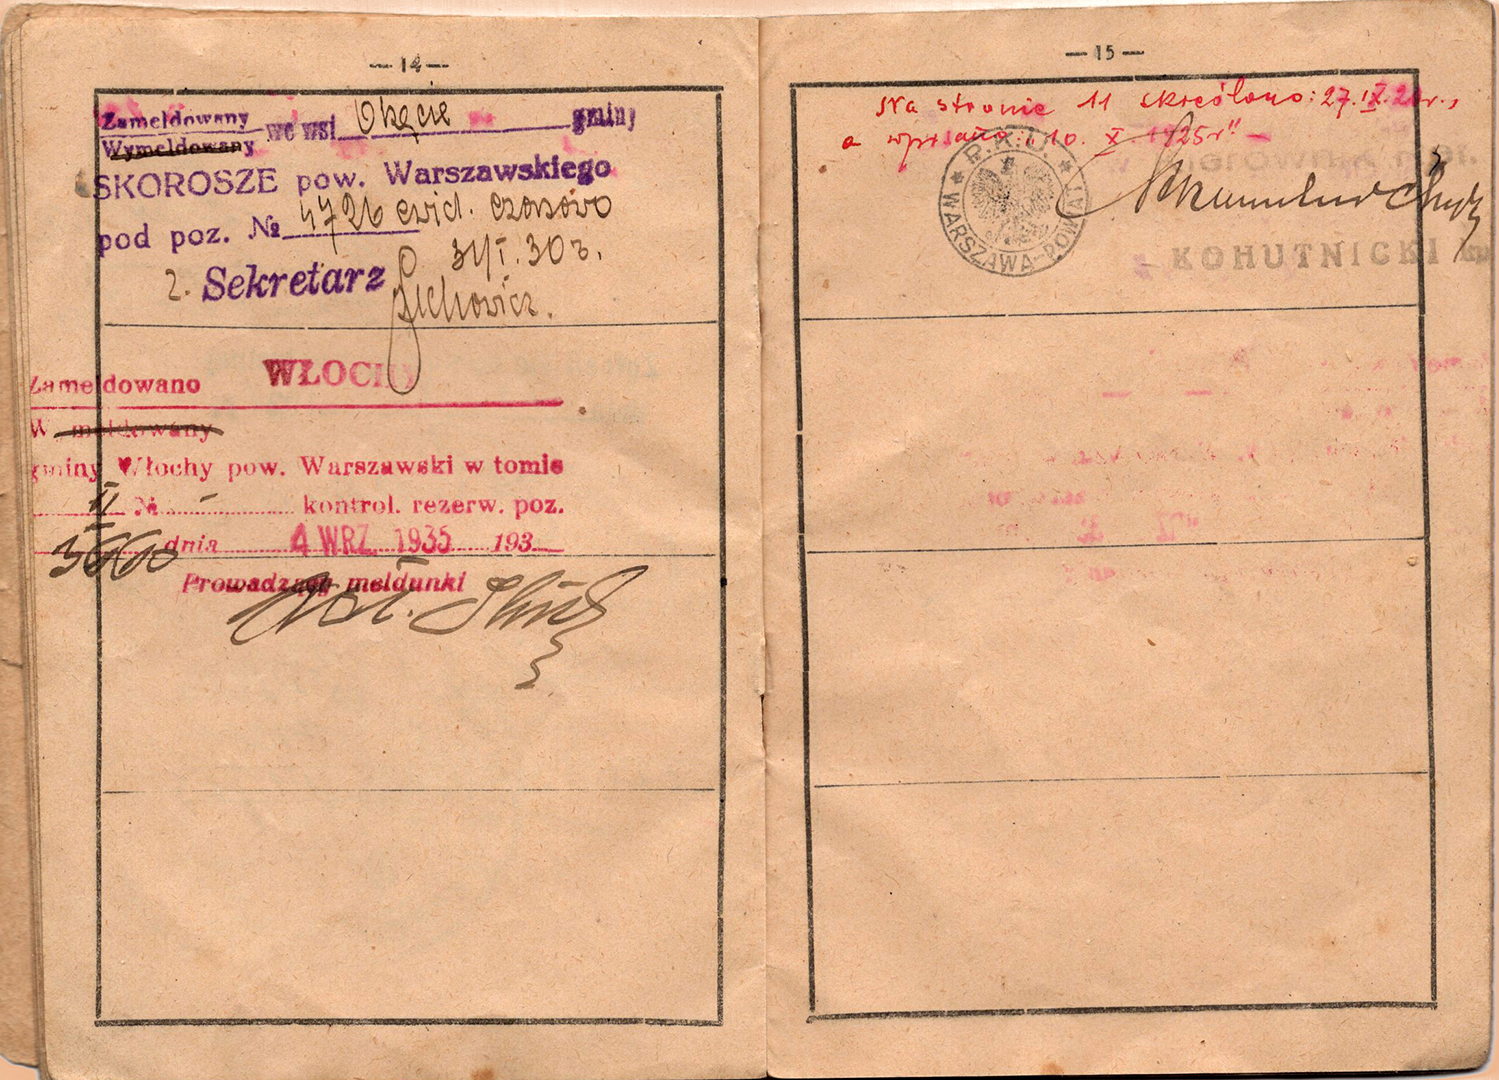 — 14 —
Zameldowany
Wymeldowany we wsi Okęcie gminy
SKOROSZE pow. Warszawskiego
pod poz. № 4726 ewid. czasowo
31/I.30 r.
2. Sekretarz
Zameldowano WŁOCHY
Wymeldowany
gminy Włochy pow. Warszawski w tomie
II № - kontrol. rezerw. poz.
3660 dnia 4 WRZ. 1935 193
Prowadzący meldunki
— 15 —
Na stronie 11 skreślono: 27.IX.2 r.,
a wpisano: „10. X. 1925 r" —
P.K.U.
WARSZAWA-POWIAT
KOHUTNICKI